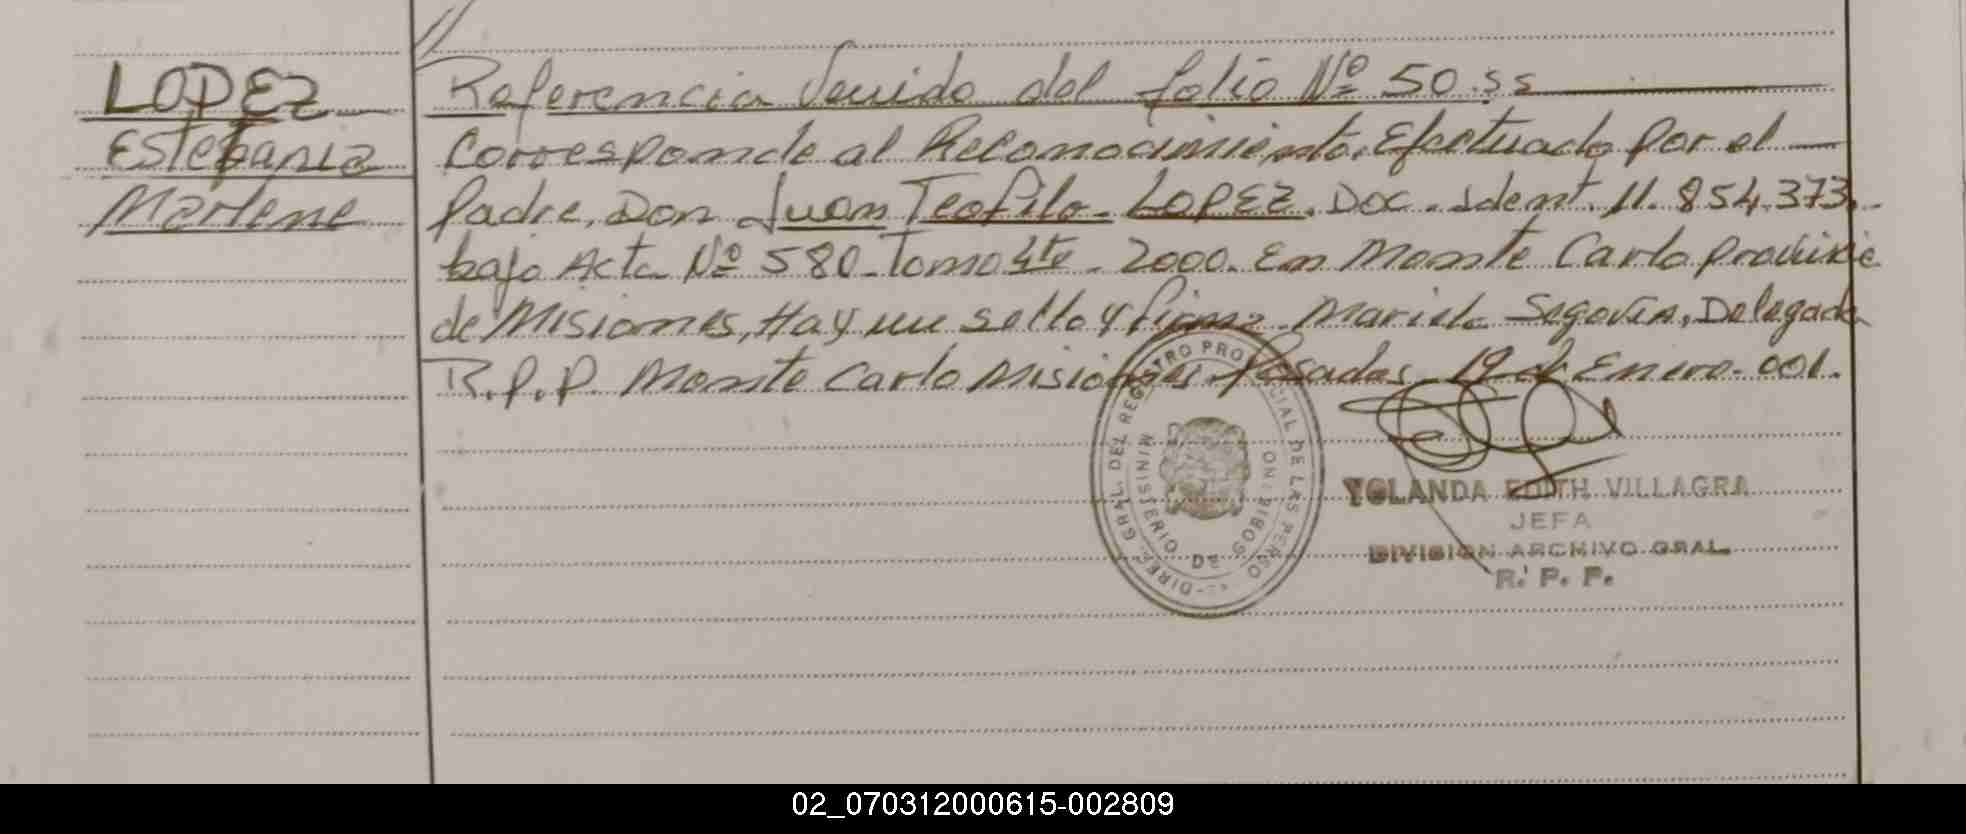 LOPEZ
Estefania
Marlene
Referencia Venido del folio Nº 50.ss
Corresponde al Reconocimiento. Efectuado por el
Padre, Don Juan Teofilo. LOPEZ. Doc. Ident. 11.854.373.
bajo Acta Nº 580. Tomo 4to. 2000. En Monte Carlo provincia
de Misiones, Hay un sello y firma. Mariela Segovia, Delegada
R.P.P. Monte Carlo Misiones. Posadas, 19 de Enero. 001.
DIREC. GRAL. DEL REGISTRO PROVINCIAL DE LAS PERSO
MINISTERIO DE GOBIERNO
YOLANDA EDITH VILLAGRA
JEFA
DIVISION ARCHIVO GRAL.
R. P. P.
02_070312000615-002809